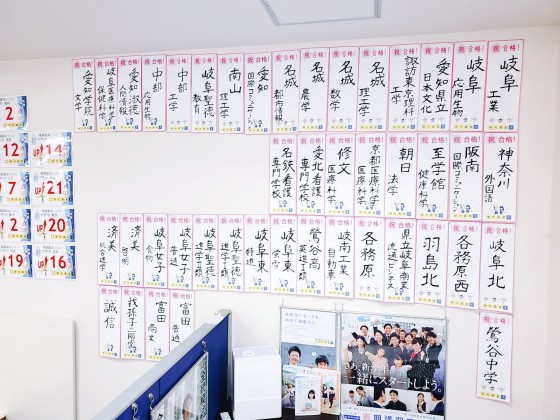 祝 合格!
岐阜
工業
祝 合格!
岐阜
応用生物
祝 合格!
愛知県立
日本文化
祝 合格!
諏訪東京理科
工学
祝 合格!
名城
理工学
祝 合格!
名城
数学
祝 合格!
名城
農学
祝 合格!
名城
都市情報
祝 合格!
愛知
国際コミュニケーション
祝 合格!
南山
理工学
祝 合格!
岐阜聖徳
教育
祝 合格!
中部
工学
祝 合格!
中部
応用生物
祝 合格!
愛知淑徳
人間情報
祝 合格!
岐阜医療科学
保健科学
祝 合格!
愛知学院
文学
祝 合格!
神奈川
外国語
祝 合格!
阪南
国際コミュニケーション
祝 合格!
至学館
健康科学
祝 合格!
朝日
法学
祝 合格!
京都医療科学
医療科学
祝 合格!
修文
医療科学
祝 合格!
愛北看護
専門学校
祝 合格!
名鉄看護
専門学校
祝 合格!
岐阜北
祝 合格!
各務原西
祝 合格!
羽島北
祝 合格!
県立岐阜商業
流通ビジネス
祝 合格!
各務原
祝 合格!
岐南工業
自動車
祝 合格!
鶯谷高
祝 合格!
岐阜東
祝 合格!
岐阜東
特進
祝 合格!
岐阜聖徳
祝 合格!
岐阜聖徳
祝 合格!
岐阜女子
普通
祝 合格!
岐阜女子
食物
祝 合格!
済美
啓明
祝 合格!
済美
総合進学
祝 合格!
鶯谷中学
祝 合格!
富田
普通
祝 合格!
富田
商業
祝 合格!
我孫子二階堂
祝 合格!
誠信
2
12
up! 14
7
up! 21
2
up! 20
19
up! 16
さあ、新学年
一緒にスタートしよう。
春期講習